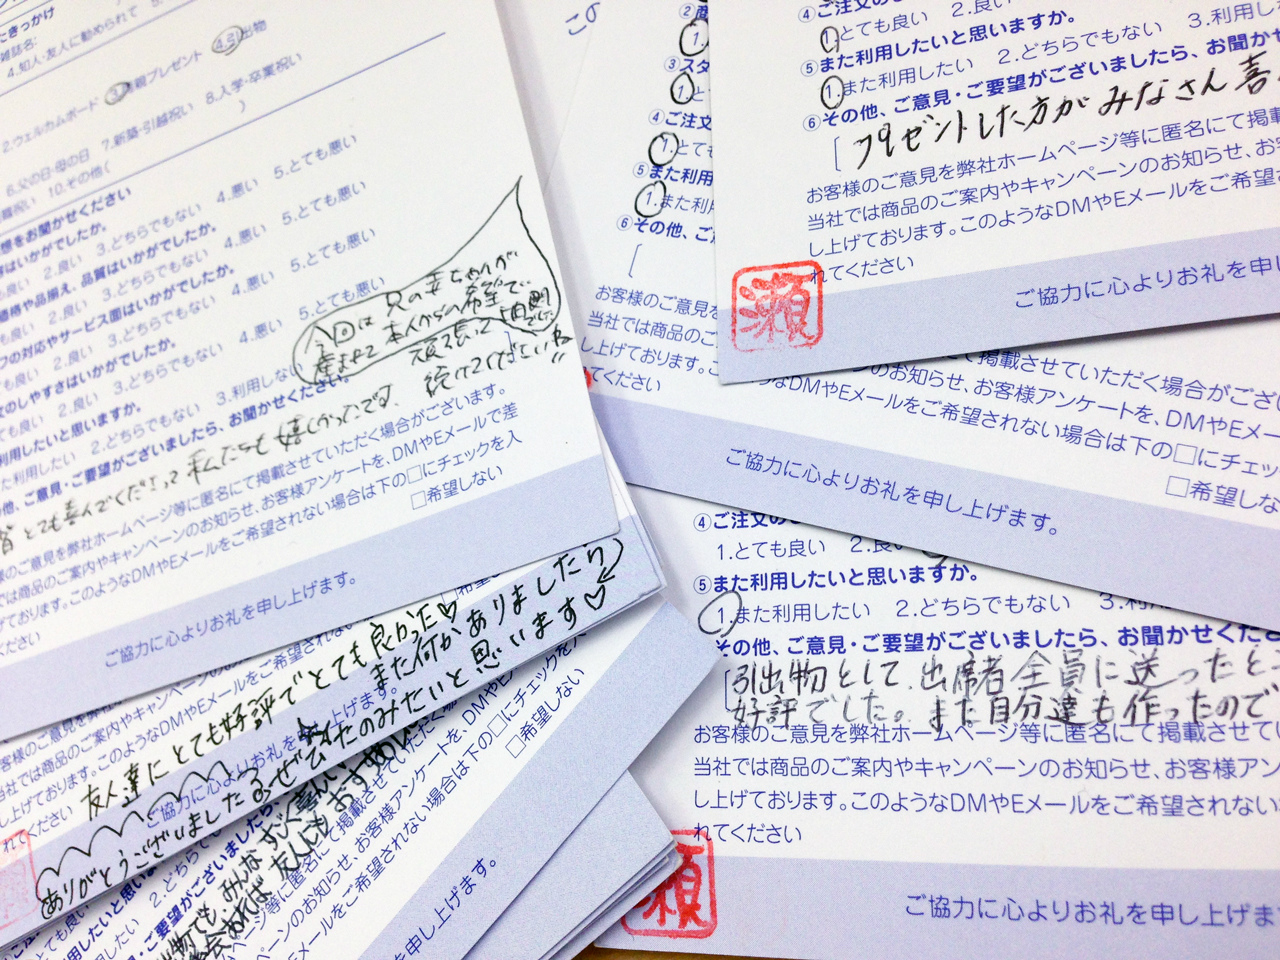 にきっかけ
雑誌名:
4.知人・友人に勧められて 5.
2.ウェルカムボード 3.両親プレゼント 4.引出物
6.父の日・母の日 7.新築・引越祝い 8.入学・卒業祝い
10.その他( )
想をお聞かせください
はいかがでしたか。
良い 2.良い 3.どちらでもない 4.悪い 5.とても悪い
価格や品揃え、品質はいかがでしたか。
良い 2.良い 3.どちらでもない 4.悪い 5.とても悪い
フの対応やサービス面はいかがでしたか。
も良い 2.良い 3.どちらでもない 4.悪い 5.とても悪い
文のしやすさはいかがでしたか。
ても良い 2.良い 3.どちらでもない 4.悪い 5.とても悪い
利用したいと思いますか。
た利用したい 2.どちらでもない 3.利用しない
の他、ご意見・ご要望がございましたら、お聞かせください。
今回は兄の
本人からの希望で
頑張って
続けてくださいね!!
皆とても喜んでくださって私たちも嬉しかったです。
様のご意見を弊社ホームページ等に匿名にて掲載させていただく場合がございます。
では商品のご案内やキャンペーンのお知らせ、お客様アンケートを、DMやEメールで差
ております。このようなDMやEメールをご希望されない場合は下の□にチェックを入
ください
□希望しない
ご協力に心よりお礼を申し上げます。
この
②商
1.
③スタ
1.と
④ご注文
1.とても
⑤また利用
1.また利用
⑥その他、ご
お客様のご意見を弊社
当社では商品のご
し上げております。
れてください
掲載させていただく場合がござい
のお知らせ、お客様アンケートを、DMやEメー
DMやEメールをご希望されない場合は下の□にチェッ
□希望しな
ご協力に心よりお礼を申し上げます。
④ご注文のし
1.とても良い 2.良い
⑤また利用したいと思いますか。
1.また利用したい 2.どちらでもない 3.利用し
⑥その他、ご意見・ご要望がございましたら、お聞か
プレゼントした方がみなさん喜
お客様のご意見を弊社ホームページ等に匿名にて掲載
当社では商品のご案内やキャンペーンのお知らせ、お
し上げております。このようなDMやEメールをご希望
れてください
瀬
ご協力に心よりお礼を申し
④ご注文の
1.とても良い 2.良い
⑤また利用したいと思いますか。
1.また利用したい 2.どちらでもない 3.利用
その他、ご意見・ご要望がございましたら、お聞かせくだ
引出物として、出席者全員に送ったとこ
好評でした。また自分達も作ったので
お客様のご意見を弊社ホームページ等に匿名にて掲載させてい
当社では商品のご案内やキャンペーンのお知らせ、お客様アン
し上げております。このようなDMやEメールをご希望されない
れてください
瀬
ご協力に心よりお礼を申し上げま
友人達にとても好評でとても良かった♡
また何かありましたら
ぜひたのみたいと思います♡
ありがとうございました
ご協力に心よりお礼を申し上げます。
れてください
利用したいと思いますか
、ご意見・ご要望がございましたら
でもみんなすごく喜んで
友人にもおすすめ
ページ等に匿名にて掲載させていただく場
ペーンのお知らせ、お客様アンケートを、DMやE
メールをご希望されない場合は下の□にチェックを入
□希望しない
を申し上げます。